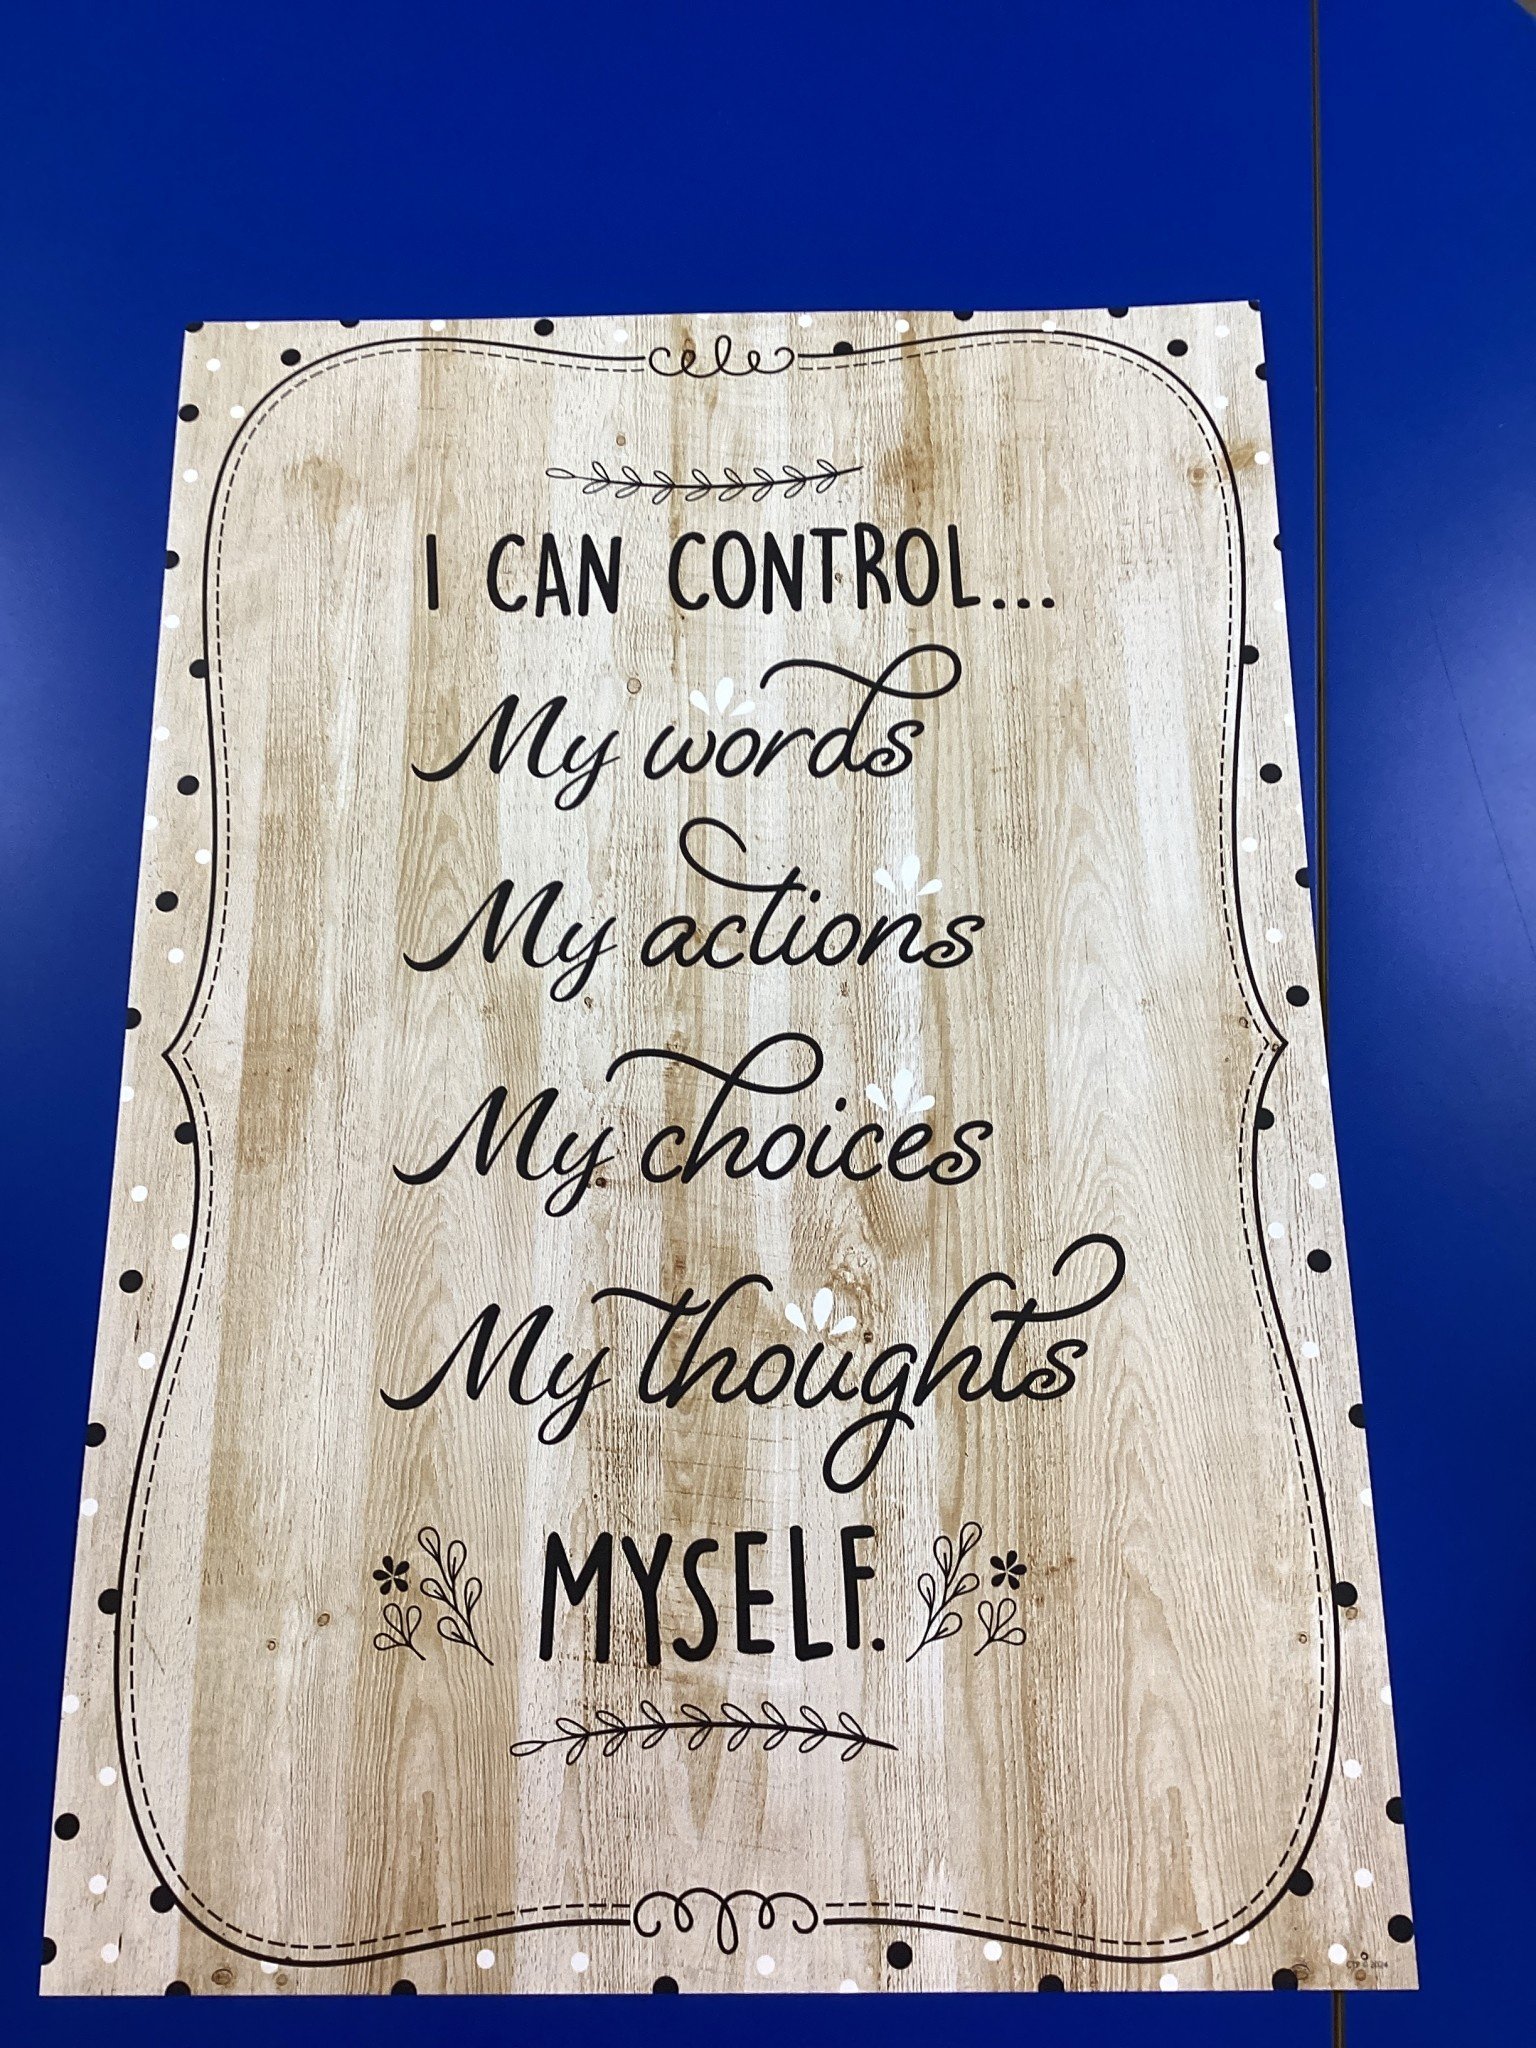 I CAN CONTROL...
My words
My actions
My choices
My thoughts
MYSELF.